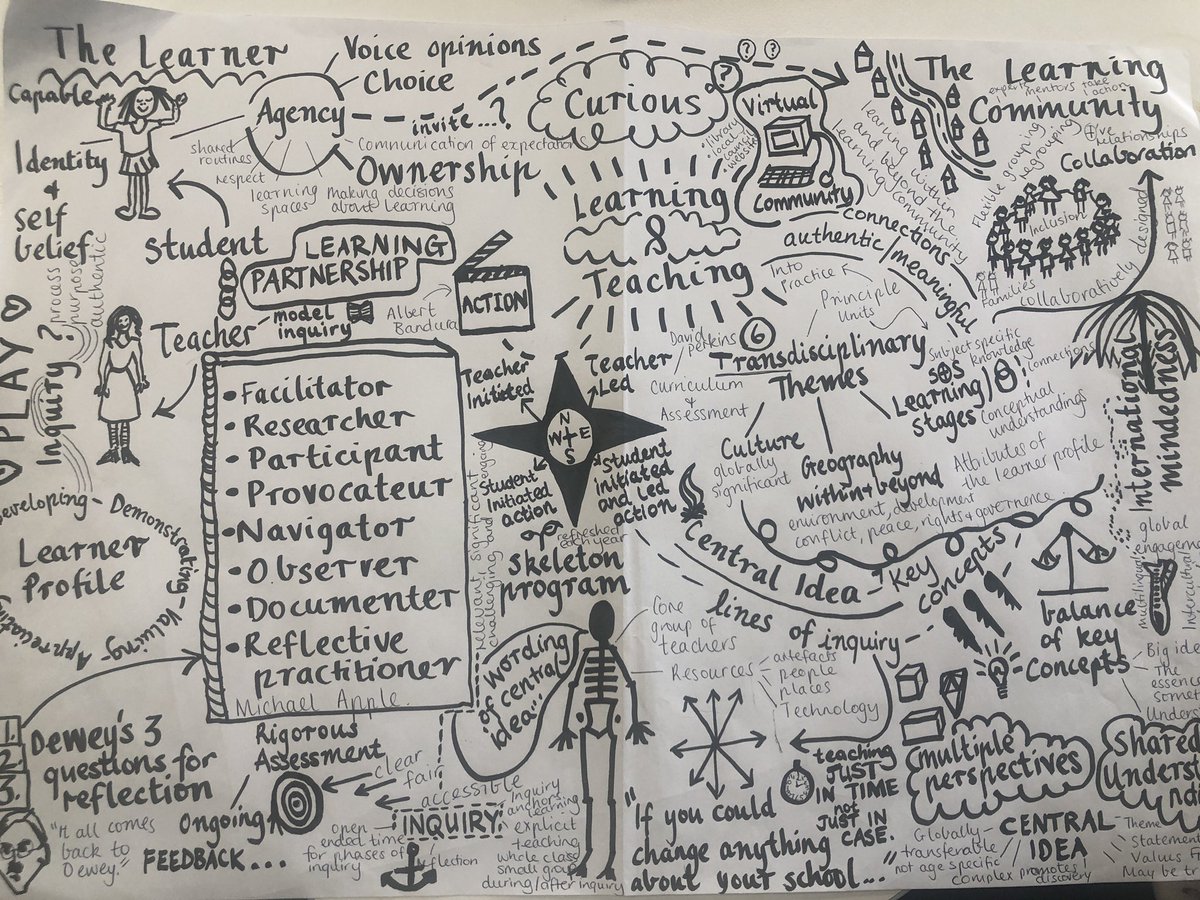 The Learner
Capable
Identity
&
self
belief
Agency
Voice opinions
Choice
invite...?
Communication of expectations
Ownership
making decisions
about learning
learning
spaces
respect
shared
routines
Student
LEARNING
PARTNERSHIP
Teacher
model
inquiry
Albert
Bandura
ACTION
PLAY
Inquiry?
process
purpose
authentic
• Facilitator
• Researcher
• Participant
• Provocateur
• Navigator
• Observer
• Documenter
• Reflective
practitioner
Michael Apple.
Developing - Demonstrating - Valuing - Appreciating
Learner
Profile
1.
2.
3.
Dewey's 3
questions for
reflection
"It all comes
back to
Dewey."
Rigorous
Assessment
clear
fair
accessible
Ongoing
FEEDBACK...
open
ended time
for phases of
inquiry
INQUIRY
reflection
Inquiry
anchors learning
explicit
teaching
whole class
small group
during/after inquiry
Curious
Learning
&
Teaching
? ?
?
Virtual
Community
• library
• local
website
Teacher
Initiated
Teacher
Led
N
W E
S
Student
Initiated
action
Student
initiated
and Led
action
relevant, significant
challenging and engaging
refreshed
each year
skeleton
program
"wording
of central
idea"
Core
group of
teachers
Resources
artefacts
people
places
Technology
"If you could
change anything
about your school..."
The Learning
Community
expert
mentors take
action
learning within
and beyond the
learning community
Flexible grouping
regrouping
+ive
relationships
Collaboration
Inclusion
Families
collaboratively designed
connections
authentic/meaningful
Into
Practice
Principle
Units
David
Perkins
6
Transdisciplinary
Themes
Curriculum
&
Assessment
Subject specific
knowledge
connections
Learning
stages
conceptual
understandings
Attributes of
the learner profile
Culture
globally
significant
Geography
within + beyond
environment, development
conflict, peace, rights & governence
International
mindedness
global
engagement
multilingual
Intercultural
Central Idea - Key
concepts
lines of inquiry
balance
of key
concepts
Big idea
The
essence
teaching
JUST
IN TIME
not
JUST IN
CASE.
multiple
perspectives
Shared
CENTRAL
IDEA
Globally
transferable
not age specific
complex promotes
discovery
Theme
Statement
Values
May be